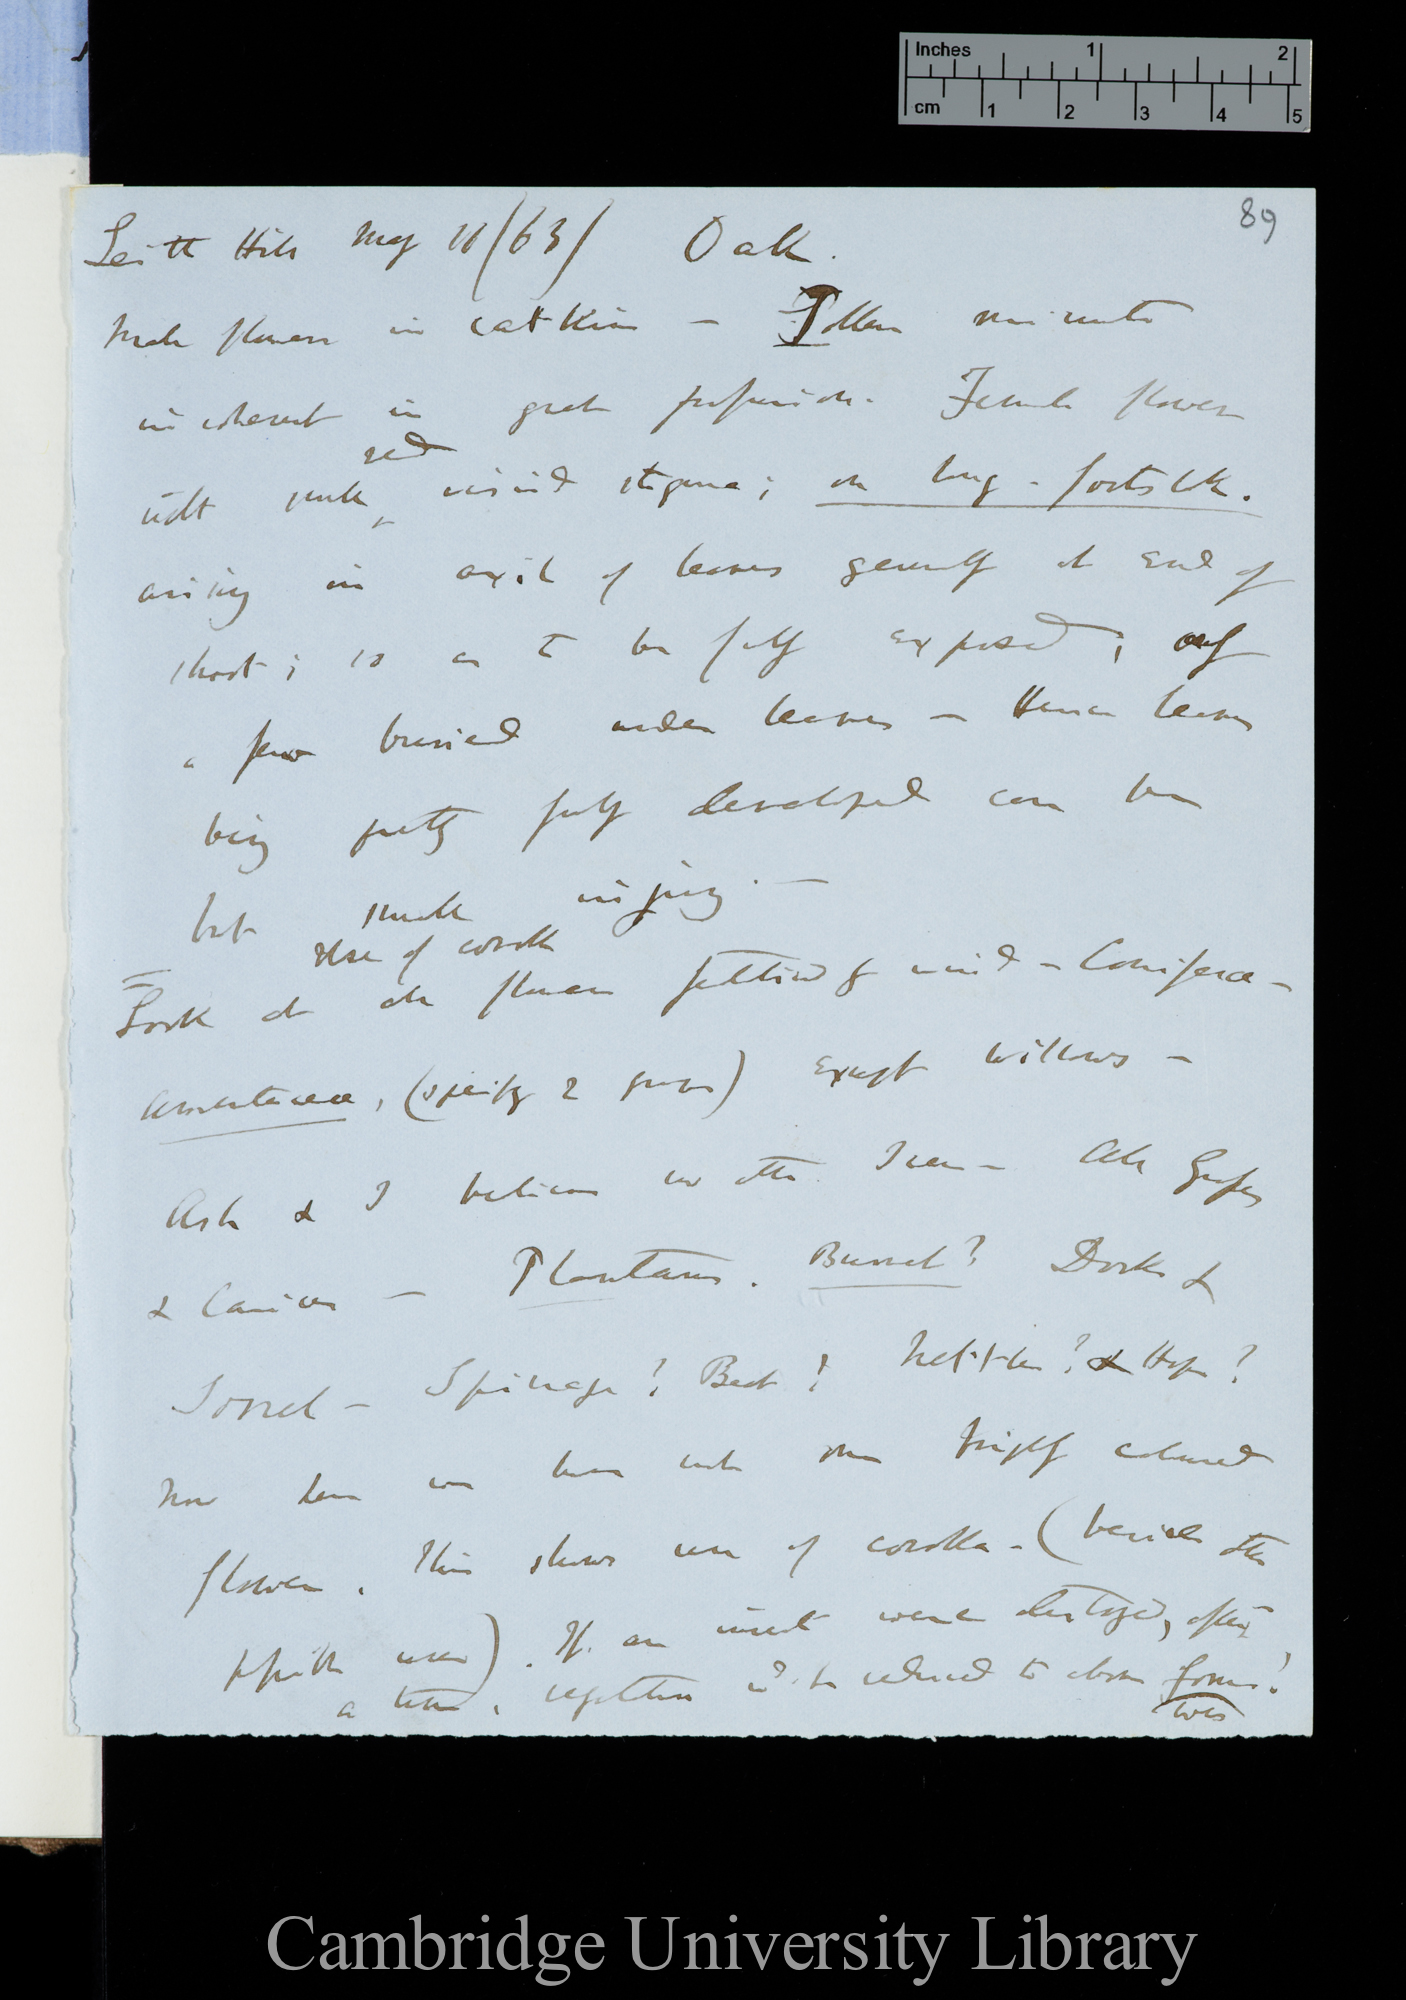 Inches 1 2
cm 1 2 3 4 5
89
Leith Hill May 11/63/ Oak.
Male flowers in catkins — Pollen minute
incoherent in great profusion. Female flowers
with small red viscid stigma; on long-footstalk.
arising in axil of leaves generally at end of
shoot; so as to be fully exposed; only
a few buried under leaves — Hence leaves
being pretty fully developed can be
but small injury. —
use of corolla
Look at all flowers fertilised by wind — Coniferæ —
Amentaceæ, (specify 2 groups) except Willows —
Ash & I believe no other Trees — All Grasses
& Carices — Plantains. Burnet? Docks &
Sorrel — Spinage? Beet? Nettles? & Hops?
Now here we have not one brightly coloured
flower. This shows use of corolla — (besides other
possible uses). If an insect were destroyed, after
a time, vegetation wd. be reduced to above forms?
Cambridge University Library